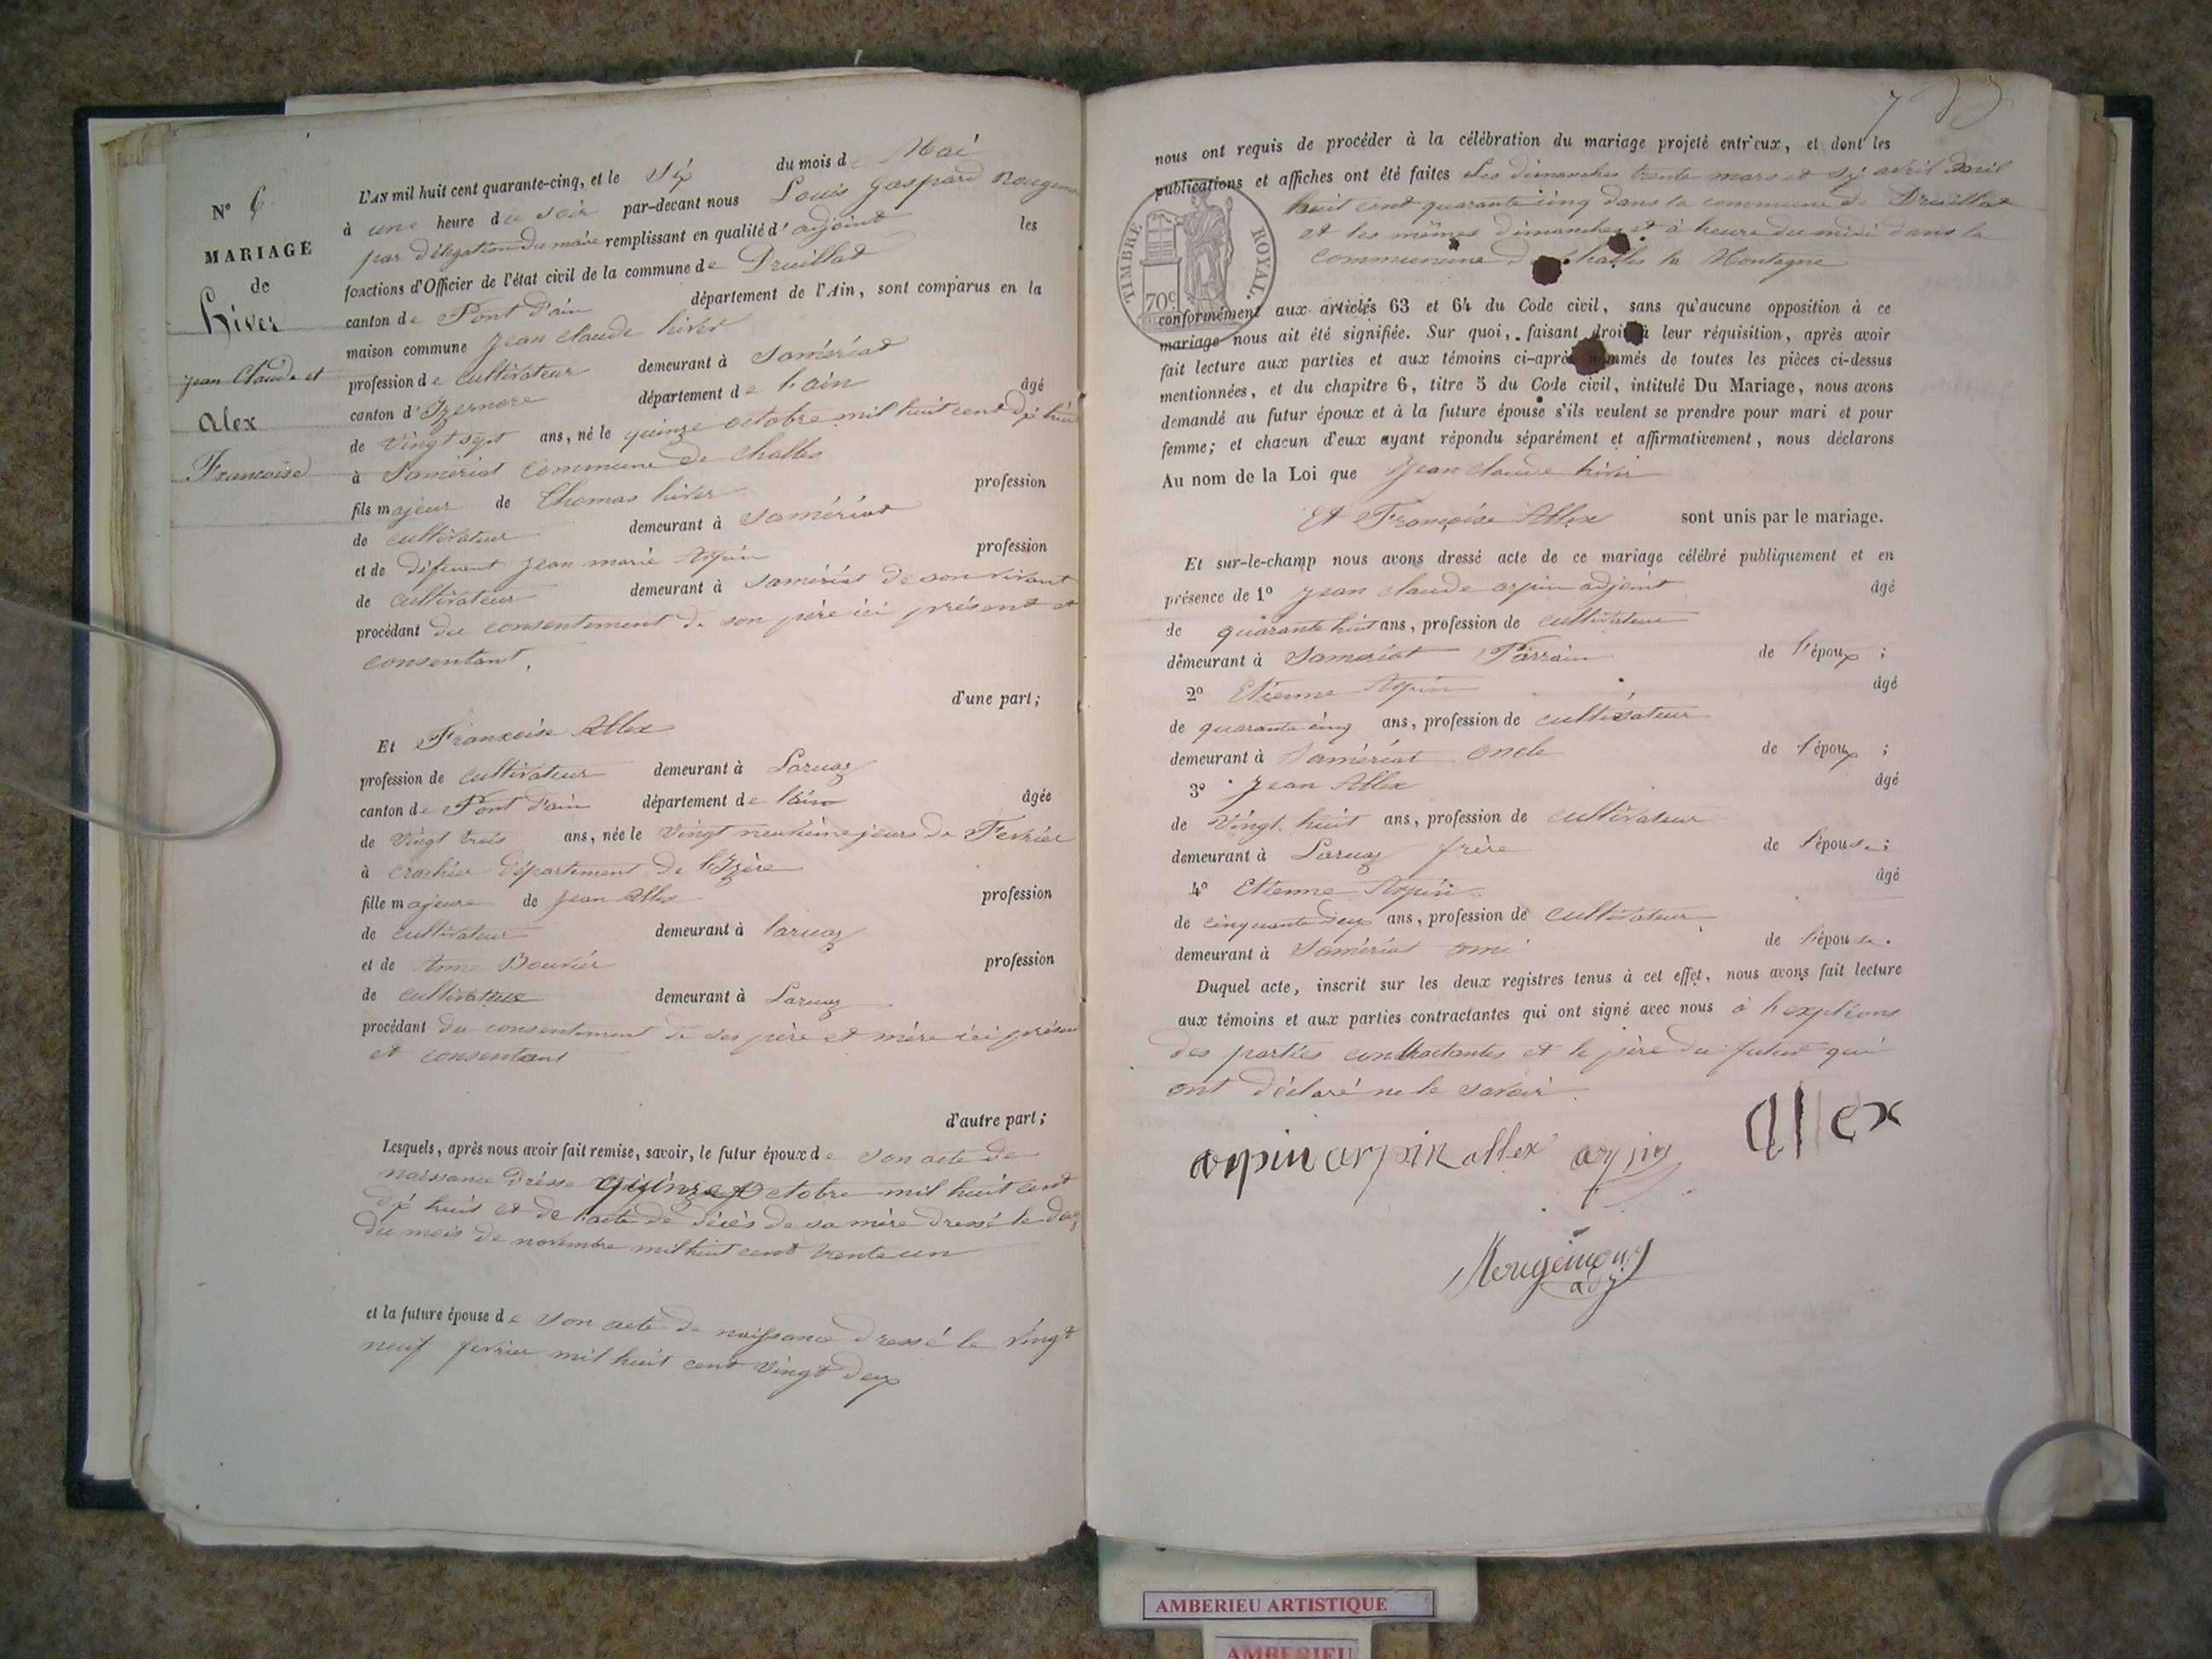 N° 6
MARIAGE
de
hiver
jean Claude et
alex
Francoise
L'AN mil huit cent quarante-cinq, et le Six du mois de Mai
à une heure du soir par-devant nous Louis Gaspard Rougemont
par délégation du maire remplissant en qualité d'adjoint les
fonctions d'Officier de l'état civil de la commune de Druillat
canton de Pont d'ain département de l'Ain, sont comparus en la
maison commune Jean Claude hiver
profession de cultivateur demeurant à Samériat
canton d'Izernore département de l'ain âgé
de vingt sept ans, né le quinze octobre mil huit cent dix huit
à Samériat commune de Challes
fils majeur de Thomas hiver profession
de cultivateur demeurant à Samériat
et de défeunt jean marie Arpin profession
de cultivateur demeurant à Samériat de son vivant
procédant du consentement de son père ici présent et
consentant.
d'une part;
Et Francoise Allex
profession de cultivateur demeurant à Larnaz
canton de Pont d'ain département de l'ain âgée
de vingt trois ans, née le vingt neuvième jours de Fevrier
à crachier département de l'Izère
fille majeure de jean Allex profession
de cultivateur demeurant à larnaz
et de Anne Bouvier profession
de cultivatrice demeurant à Larnaz
procédant du consentement de ses père et mère ici présen
et consentant
d'autre part;
Lesquels, après nous avoir fait remise, savoir, le futur époux de son acte de
naissance dressé quinze Octobre mil huit cent
dix huit et de l'acte de décès de sa mère dressé le douz
du mois de novembre mil huit cent trente un
et la future épouse de son acte de naissance dressé le vingt
neuf fevrier mil huit cent vingt deux
nous ont requis de procéder à la célébration du mariage projeté entr'eux, et dont les
publications et affiches ont été faites les dimanches trente mars et six avril mil
huit cent quarante cinq dans la commune de Druillat
et les mêmes dimanches et à heure du midi dans la
commune de Challes la Montagne
TIMBRE ROYAL.
70c
conformément aux articles 63 et 64 du Code civil, sans qu'aucune opposition à ce
mariage nous ait été signifiée. Sur quoi, faisant droit à leur réquisition, après avoir
fait lecture aux parties et aux témoins ci-après nommés de toutes les pièces ci-dessus
mentionnées, et du chapitre 6, titre 5 du Code civil, intitulé Du Mariage, nous avons
demandé au futur époux et à la future épouse s'ils veulent se prendre pour mari et pour
femme; et chacun d'eux ayant répondu séparément et affirmativement, nous déclarons
Au nom de la Loi que Jean claude hiver
Et Françoise Allex sont unis par le mariage.
Et sur-le-champ nous avons dressé acte de ce mariage célébré publiquement et en
présence de 1° jean claude arpin adjoint âgé
de quarante huit ans, profession de cultivateur
demeurant à Samériat Parrain de l'époux;
2° Etienne Arpin âgé
de quarante cinq ans, profession de cultivateur
demeurant à Samériat oncle de l'époux;
3° Jean Allex âgé
de vingt huit ans, profession de cultivateur
demeurant à Larnaz frère de l'épouse;
4° Etienne Arpin âgé
de cinquante deux ans, profession de cultivateur
demeurant à Samériat ami de l'épouse.
Duquel acte, inscrit sur les deux registres tenus à cet effet, nous avons fait lecture
aux témoins et aux parties contractantes qui ont signé avec nous à l'exptions
des parties contractantes et le père du futur qui
ont déclaré ne le savoir.
arpin arpin allex arpin allex
Rougemont
adj
AMBERIEU ARTISTIQUE
AMBERIEU